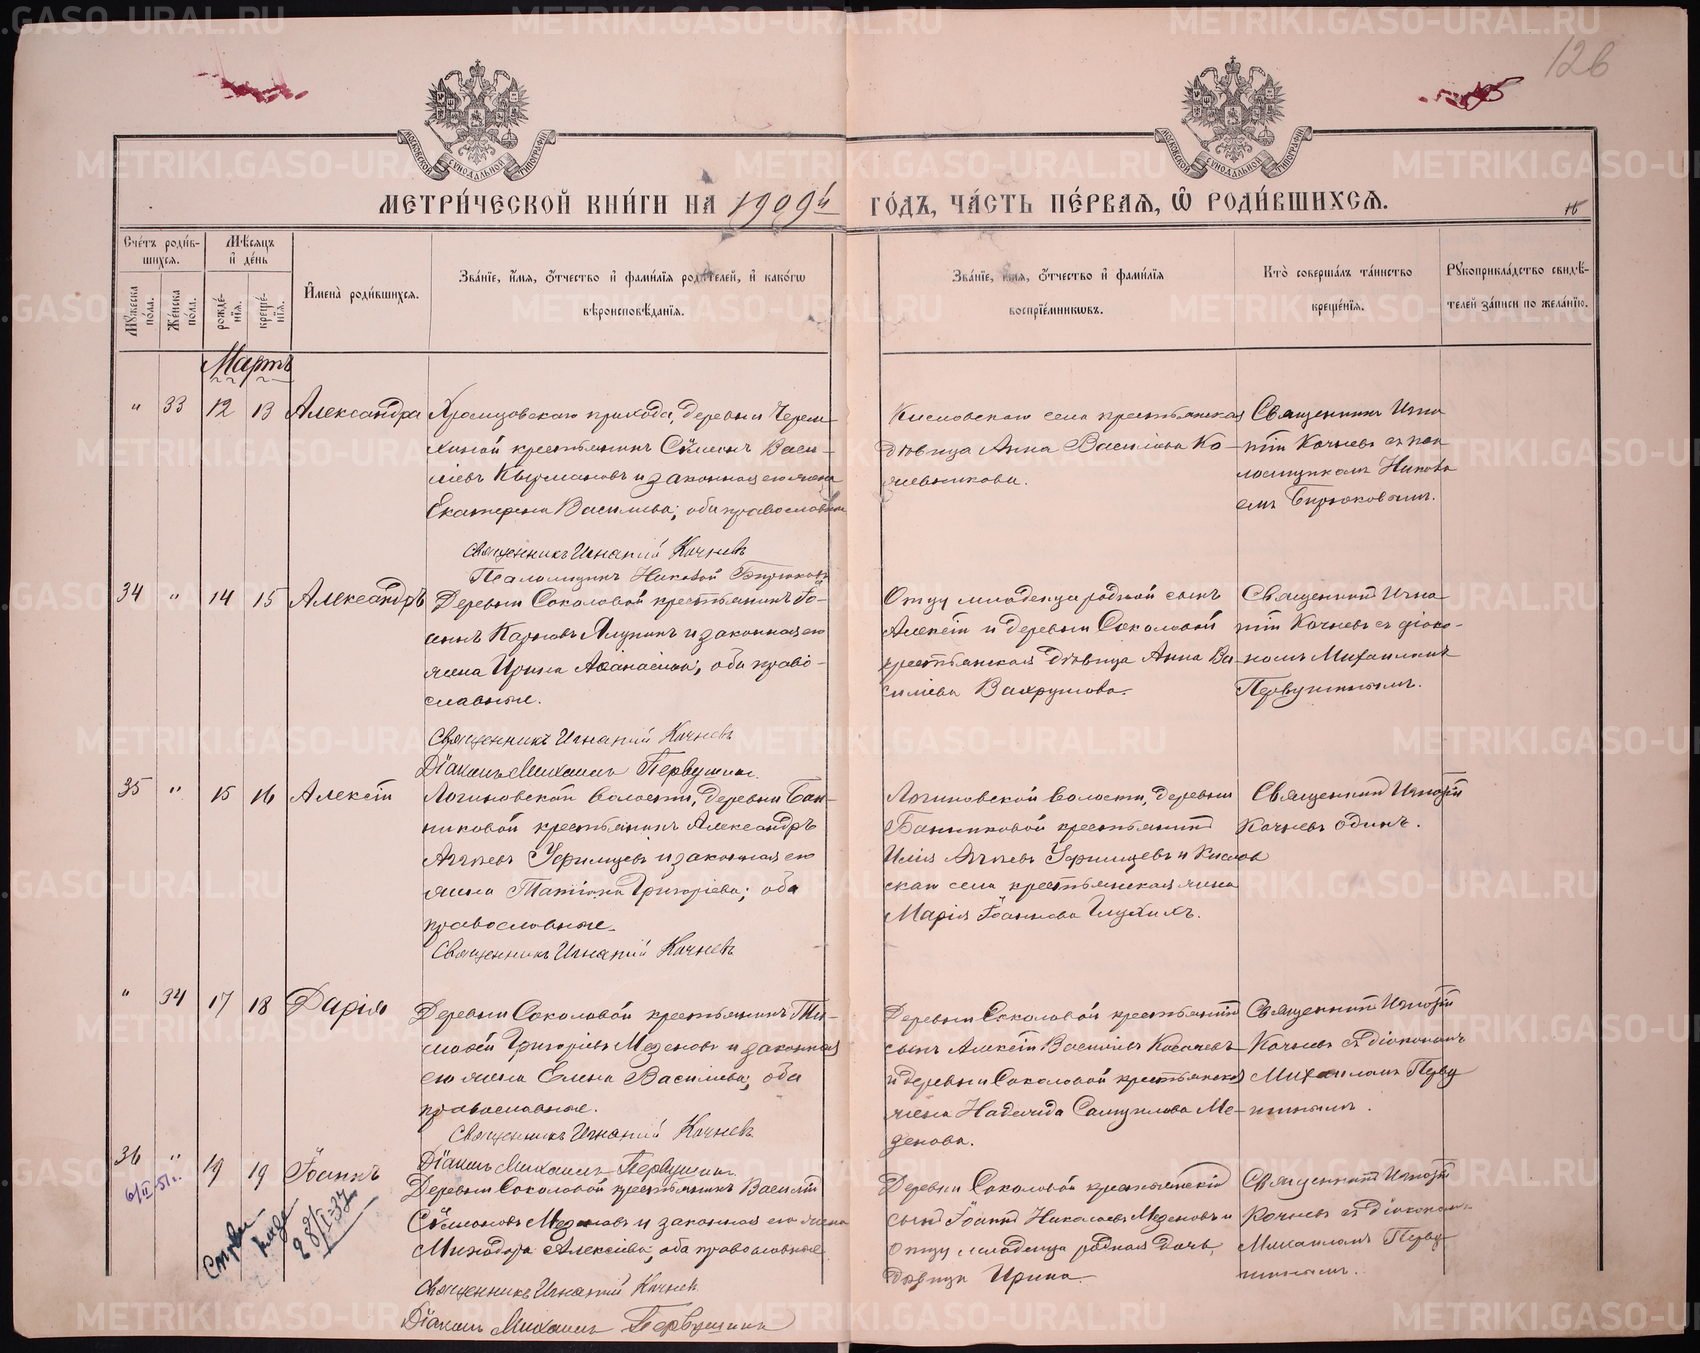 126
МОСКОВСКОЙ СУНОДАЛЬНОЙ ТИПОГРАФІИ
МОСКОВСКОЙ СУНОДАЛЬНОЙ ТИПОГРАФІИ
МЕТРИ́ЧЕСКОЙ КНИ́ГИ НА 1909й ГО́ДЪ, ЧА́СТЬ ПЕ́РВАЯ, Ѡ РОДИ́ВШИХСѦ.
Сче́тъ роди́в-
шихсѧ.
Мѣ́сяцъ
и҆ де́нь
Мꙋ́жеска
по́ла.
Же́нска
по́ла.
рожде́-
нїѧ.
креще́-
нїѧ.
И҆мена̀ роди́вшихсѧ.
Зва́нїе, и҆́мѧ, ѻ҆́тчество и҆ фами́лїѧ роди́телей, и҆ како́гѡ
вѣроисповѣ́данїѧ.
Зва́нїе, и҆́мѧ, ѻ҆́тчество и҆ фами́лїѧ
воспрїе́мникѡвъ.
Кто̀ соверша́лъ та́инство
креще́нїѧ.
Рꙋкоприкла́дство свидѣ́-
телей за́писи по жела́нїю.
Мартъ
" 33 12 13 Александра
Храмцовскаго прихода, деревни Черем-
хиной крестьянинъ Сѵмеонъ Васи-
ліевъ Кырмановъ и законная его жена
Екатерина Василіева; оба православные
Священникъ Игнатій Кочневъ
Псаломщикъ Николай Бирюковъ
Кисловскаго села крестьянская
дѣвица Анна Василіева Ко-
жевникова.
Священникъ Игна
тій Кочневъ съ пса
ломщикомъ Никола
емъ Бирюковымъ.
34 " 14 15 Александръ
Деревни Соколовой крестьянинъ Іо-
аннъ Карповъ Ялунинъ и законная его
жена Ирина Аѳанасіева; оба право-
славные.
Священникъ Игнатій Кочневъ
Діаконъ Михаилъ Первушинъ.
Отцу младенца родной сынъ
Алексій и деревни Соколовой
крестьянская дѣвица Анна Ва-
силіева Вахрушова.
Священникъ Игна
тій Кочневъ съ діако-
номъ Михаиломъ
Первушинымъ.
35 " 15 16 Алексій
Логиновской волости, деревни Бан-
никовой крестьянинъ Александръ
Аггѣевъ Уфимцевъ и законная его
жена Татіана Григоріева; оба
православные.
Священникъ Игнатій Кочневъ
Логиновской волости, деревни
Банниковой крестьянинъ
Илія Аггѣевъ Уфимцевъ и Кислов
скаго села крестьянская жена
Марія Іоаннова Глухихъ.
Священникъ Игнатій
Кочневъ одинъ.
" 34 17 18 Дарія
Деревни Соколовой крестьянинъ Ти-
моѳей Григоріевъ Меденовъ и законная
его жена Елена Василіева; оба
православные.
Священникъ Игнатій Кочневъ
Діаконъ Михаилъ Первушинъ
Деревни Соколовой крестьянскій
сынъ Алексій Василіевъ Косачевъ
и деревни Соколовой крестьянская
жена Надежда Самуилова Ме-
денова.
Священникъ Игнатій
Кочневъ съ діакономъ
Михаиломъ Перву
шинымъ.
36 " 19 19 Іоаннъ
6/II-51г.
Справка
28/I-37
Деревни Соколовой крестьянинъ Василій
Сѵмеоновъ Меденовъ и законная его жена
Минодора Алексіева; оба православные
Священникъ Игнатій Кочневъ
Діаконъ Михаилъ Первушинъ
Деревни Соколовой крестьянскій
сынъ Іоаннъ Николаевъ Меденовъ и
отцу младенца родная дочь,
дѣвица Ирина.
Священникъ Игнатій
Кочневъ съ діакономъ
Михаиломъ Перву
шинымъ.
METRIKI.GASO-URAL.RU